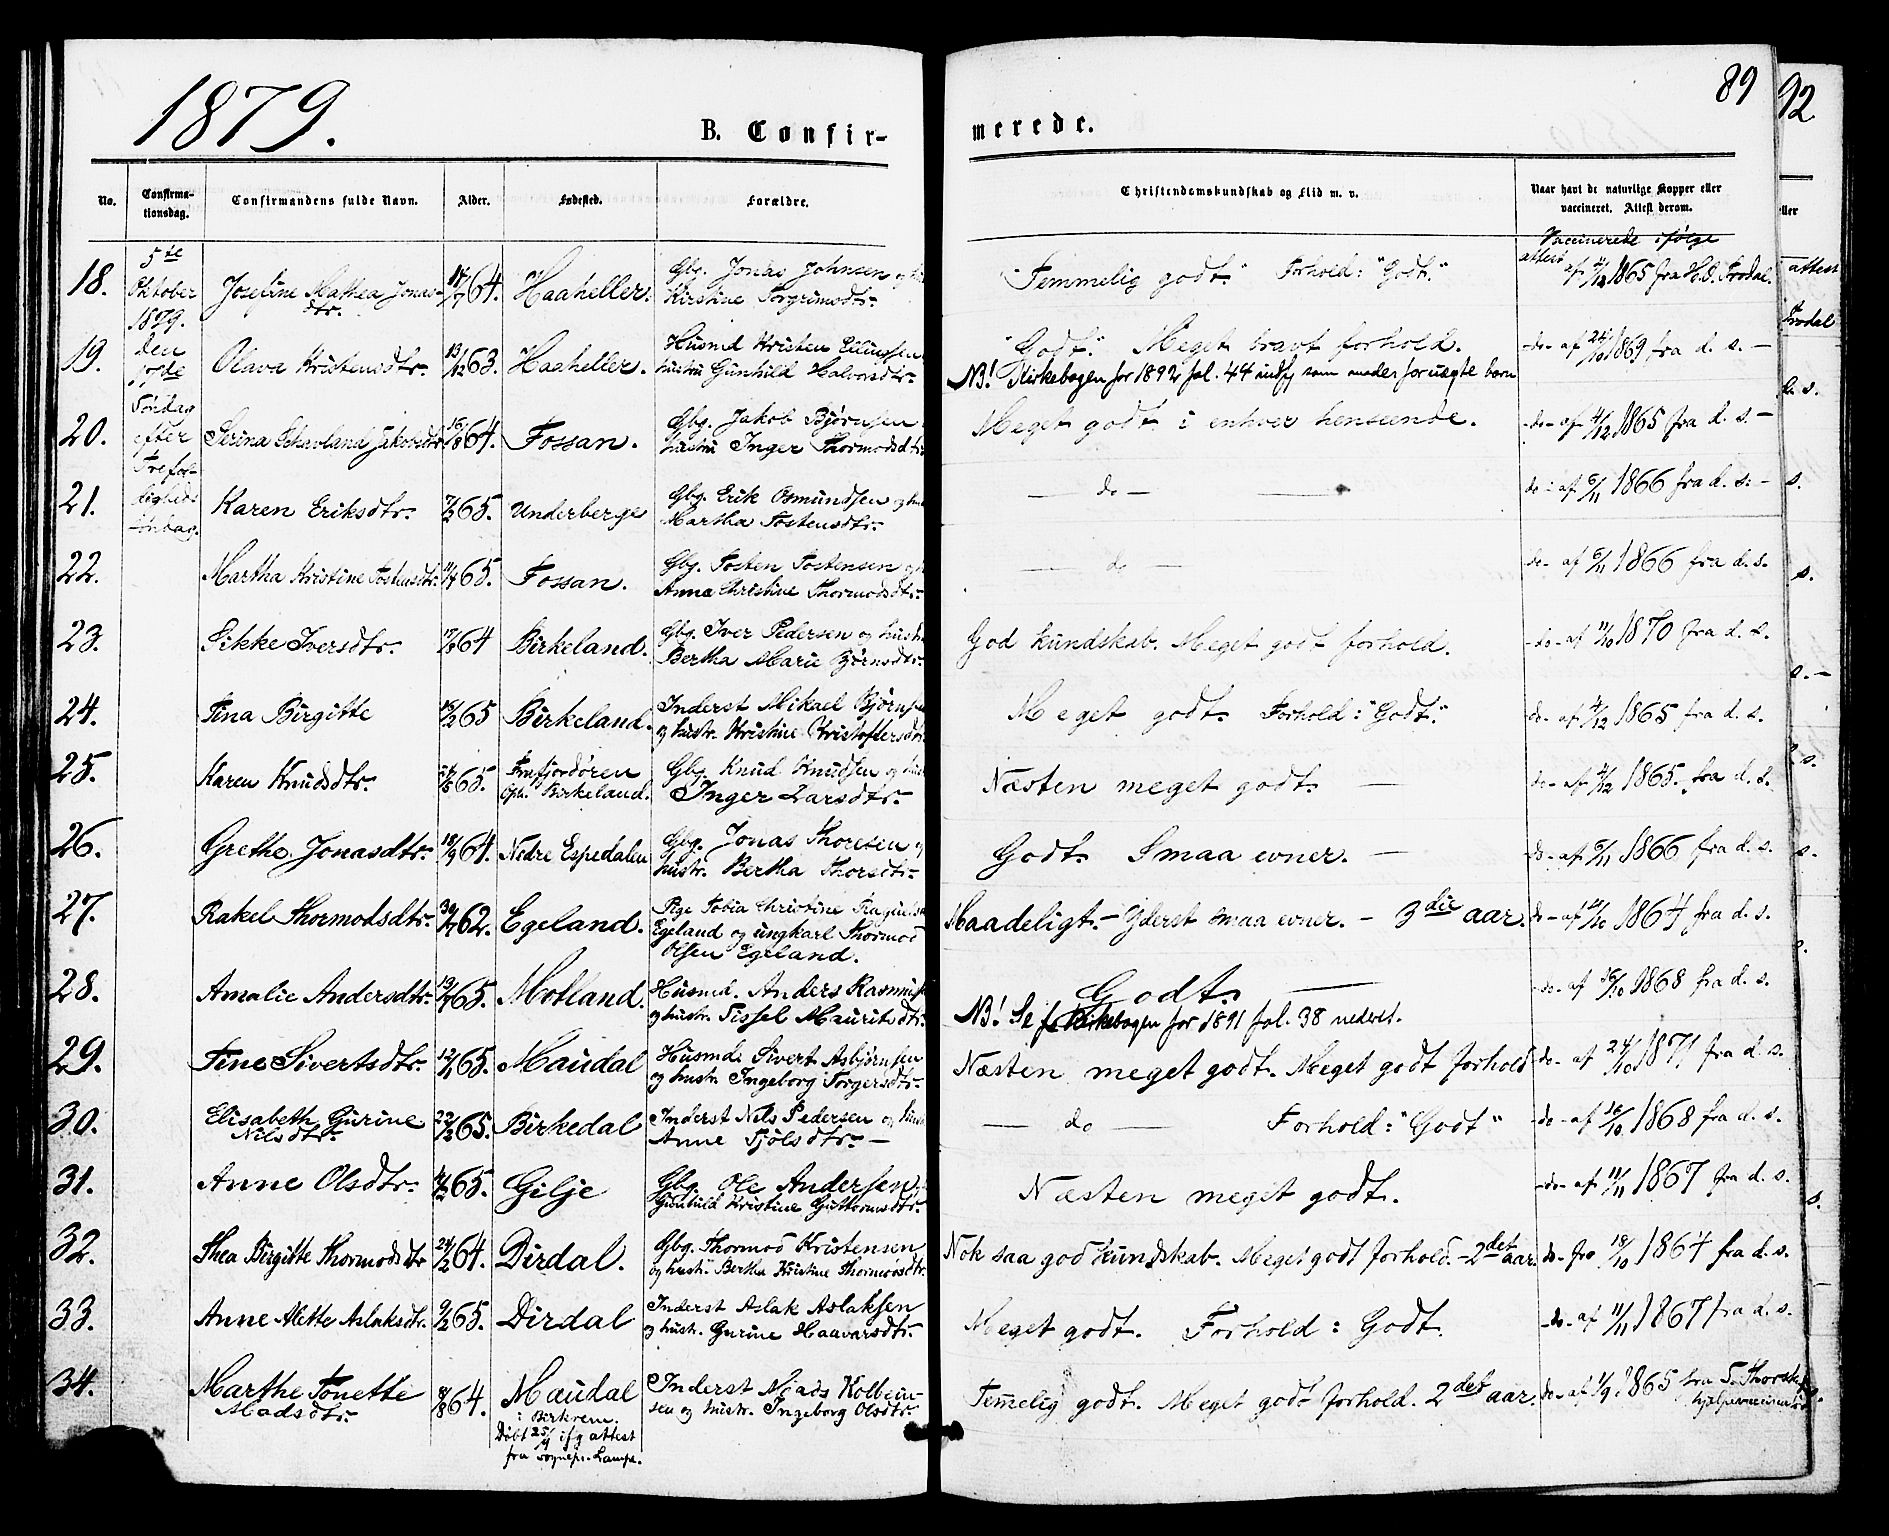 1879.
B. Confir-
merede.
89
92
No.
Confirma-
tionsdag.
Confirmandens fulde Navn.
Alder.
Fødested.
Forældre.
Christendomskundskab og Flid m. v.
Naar havt de naturlige Kopper eller
vaccineret. Attest derom.
5te
Oktober
1879.
den
Søndag
efter
Trefol-
digheds
18. Josefine Mathea Jonas-
dtr.
64. Haaheller. Gbg. Jonas Johnsen og
Kirstine Torgrimsdtr.
"Temmelig godt." Forhold: "Godt."
Vaccinerede ifølge
attest af 4/12 1865 fra H. O. Frodal.
19. Olava Kristensdtr. 13/12 63. Haaheller. Husmd Kristen Ellingsen
hustru Gunhild Halvorsdtr.
"Godt." Meget bravt forhold. -do- af 24/10 1869 fra d. s. -
NB! Kirkebogen for 1892 fol. 44 som moder for uægte barn
20. Serina Jakobsdtr 64. Fossan. Gbg. Jakob Bjørnsen
hustru Inger Thormodsdtr.
Meget godt i enhver henseende. -do- af 4/12 1865 fra d. s. -
21. Karen Eriksdtr. 65. Underberge Gbg. Erik Osmundsen og
Martha Tostensdtr.
- do - do - af 6/11 1866 fra d. s. -
22. Martha Kristine Tostensdtr. 65. Fossan. Gbg. Tosten Tostensen og
Anna Christine Thormodsdtr.
- do - do - af 6/11 1866 fra d. s.
23. Sikke Iversdtr. 64 Birkeland. Gbg. Iver Pedersen og hustr
Bertha Marie Bjørnsdtr.
God kundskab. Meget godt forhold. -do- af 11/10 1870 fra d. s.
24. Tina Birgitte 65 Birkeland. Inderst Mikael Bjørnsen
og hustr. Kristine Kristoffersdtr.
Meget godt. Forhold: "Godt." do - af 4/12 1865 fra d. s.
25. Karen Knudsdtr. 65. Frafjordøren
Birkeland. Gbg. Knud Knudsen og
Inger Larsdtr.
Næsten meget godt. - do - af 4/12 1865. fra d. s.
26. Grethe Jonasdtr. 18/9 64. Nedre Espedalen Gbg. Jonas Thoresen og
hustr. Bertha Thorsdtr.
Godt. Smaa evner. - do - af 6/11 1866 fra d. s.
27. Rakel Thormodsdtr. 62. Egeland. Pige Tobia Christine
Egeland og ungkarl Thormod
Olsen Egeland.
Maadeligt. - Yderst smaa evner. - 3die aar. do - af 1864 fra d. s.
28. Amalie Andersdtr. 65. Motland. Husmd. Anders Rasmus
og hustr. Sissel Mauritsdtr.
Godt. - do - af 16/10 1868 fra d. s.
NB! Se Kirkebogen for 1891 fol. 38 nederst.
29. Tine Sivertsdtr. 65. Maudal Husmd. Sivert Asbjørnsen
og hustr. Ingeborg Torgersdtr.
Næsten meget godt. Meget godt forhold do - af 24/10 1871 fra d. s.
30. Elisabeth Gurine
Nilsdtr. 65. Birkedal Inderst Nils Pedersen og
Anne Tjølsdtr. -
- do - Forhold: "Godt" do - af 16/10 1868 fra d. s.
31. Anne Olsdtr. 65. Gilje Gbg. Ole Andersen
Gunhild Kristine Guttormsdtr.
Næsten meget godt. -do- af 11/11 1867 fra d. s.
32. Thea Birgitte Thormodsdtr 64. Dirdal. Gbg. Thormod Kristensen
og hustr. Bertha Kristine Thormodsdtr.
Nok saa god kundskab. Meget godt forhold. - 2det aar. do - fra 18/10 1864 fra d. s.
33. Anne Alette Aslaksdtr. 65. Dirdal Inderst Aslak Aslaksen
og hustr. Gurine Haavarsdtr.
Meget godt. Forhold: Godt. -do- af 11/11 1867 fra d. s.
34. Marthe Tonette
Madsdtr. 64. Maudal
i Birkrem.
Døbt ifg attest
fra sognepr. Lampe.
Inderst Mads Kolbein-
sen og hustr. Ingeborg Olsdtr.
Temelig godt. Meget godt forhold. 2det aar. do - af 1/9 1865 fra
attest
Frodal